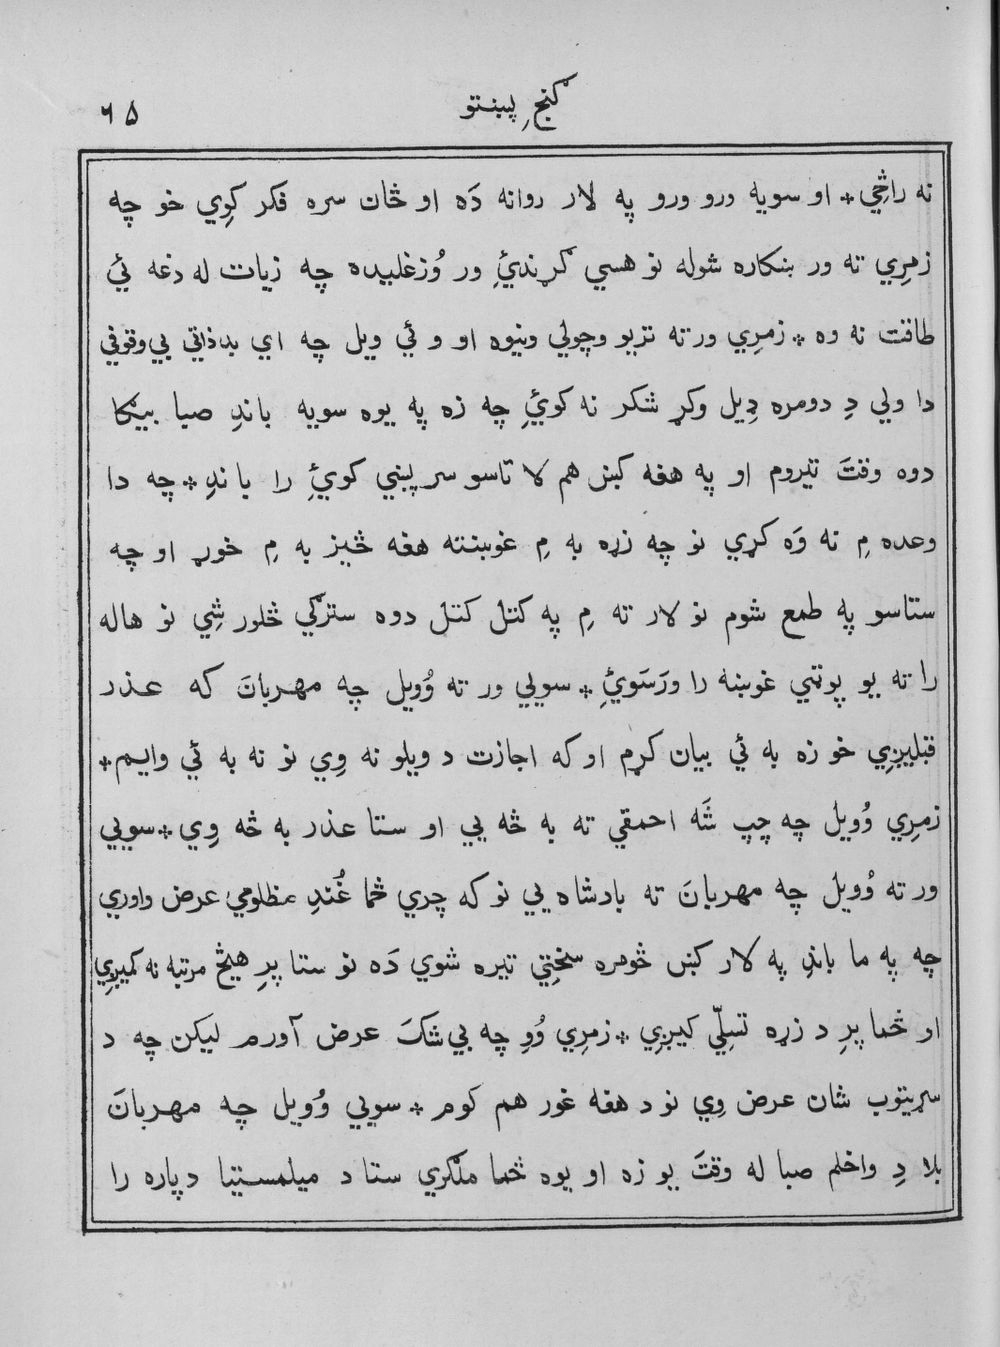 گنج ِ پښتو
٦٥
نه راځِي * او سويه ورو ورو په لار روانه دَه او ځان سره فکر کوِي خو چه
زمرِي ته ور ښکاره شوله نو هسي ګړندئِ ور وُزغليده چه زيات له دغه ئي
طاقت نه وه * زمرِي ورته تريو وچولي ونيوه او وئي ويل چه اي بدذاتي بي‌وقوفي
دا ولي دِ دومره ډيل وکړ شکر نه کوئِ چه زه په يوه سويه باندِ صبا بيګا
دوه وقتَ تيروم او په هغه کښ هم لا تاسو سرپيښي کوئِ را باندِ * چه دا
وعده مِ نه وَه کړي نو چه زړه به مِ غوښته هغه څيز به مِ خوړ او چه
ستاسو په طمع شوم نو لار ته مِ په کتل کتل دوه سترګي څلور شِي نو هاله
را ته يو پوټي غوښه را ورَسَوئِ * سويي ور ته وُويل چه مهربانَ که عذر
قبليږِي خو زه به ئي بيان کړم او که اجازت د ويلو نه وِي نو نه به ئي وايم *
زمرِي وُويل چه چپ شَه احمقي ته به څه يي او ستا عذر به څه وِي * سويي
ور ته وُويل چه مهربانَ ته بادشاه يي نو که چري ځما غُندِ مظلومي عرض واوري
چه په ما باندِ په لار کښ څومره سختِي تيره شوي دَه نو ستا پرِ هيڅ مرتبه نه کميږِي
او ځما پرِ د زړه تسلِّي کيږِي * زمرِي وُوِ چه بي شکَ عرض آورم ليکن چه د
سړيتوب شان عرض وِي نو د هغه غور هم کوم * سويي وُويل چه مهربانَ
بلا دِ واخلم صبا له وقتَ يو زه او يوه ځما ملګري ستا د ميلمستيا دپاره را